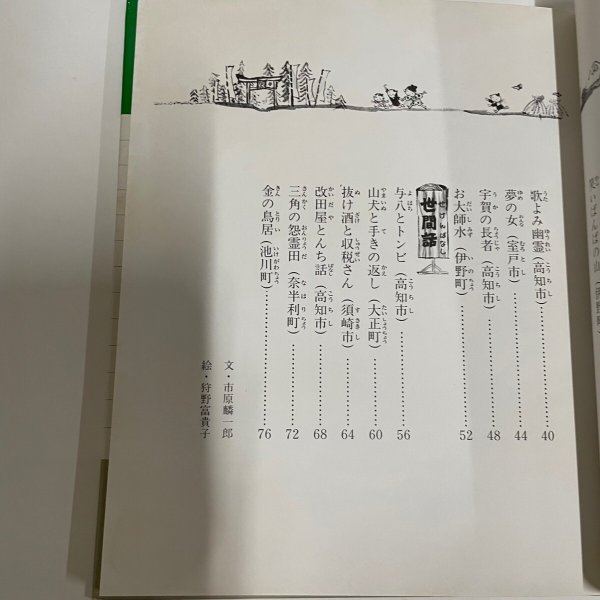 歌よみ幽霊(高知市)……40
夢の女(室戸市)……44
宇賀の長者(高知市)……48
お大師水(伊野町)……52
世間話
与八とトンビ(高知市)……56
山犬と手きの返し(大正町)……60
抜け酒と収税さん(須崎市)……64
改田屋とんち話(高知市)……68
三角の怨霊田(奈半利町)……72
金の鳥居(池川町)……76
文・市原麟一郎
絵・狩野富貴子